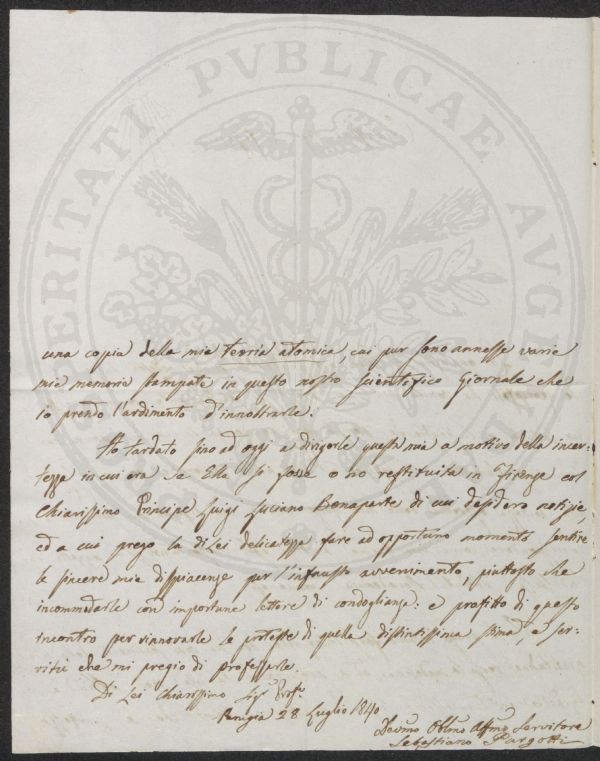 PROSPERITATI PVBLICAE AVGENDAE
una copia della mia teoria atomica, cui pur sono annesse varie
mie memorie stampate in questo nostro Scientifico Giornale che
io prendo l'ardimento d'innoltrarle.
Ho tardato sino ad oggi a dirigerle questa mia a motivo della incer-
tezza in cui era se Ella si fosse o no restituita in Firenze col
Chiarissimo Principe Luigi Luciano Bonaparte di cui desidero notizie,
ed a cui prego la di Lei delicatezza fare ad opportuno momento sentire
le sincere mie dispiacenze per l'infausto avvenimento, piuttosto che
incommodarle con importune lettere di condoglianza: e profitto di questo
incontro per rinnovarle le proteste di quella distintissima stima, e ser-
vitù che mi pregio di professarle.
Di Lei Chiarissimo Sigr Profe
Perugia 28 Luglio 1840
Devmo Obbmo Affmo Servitore
Sebastiano Purgotti